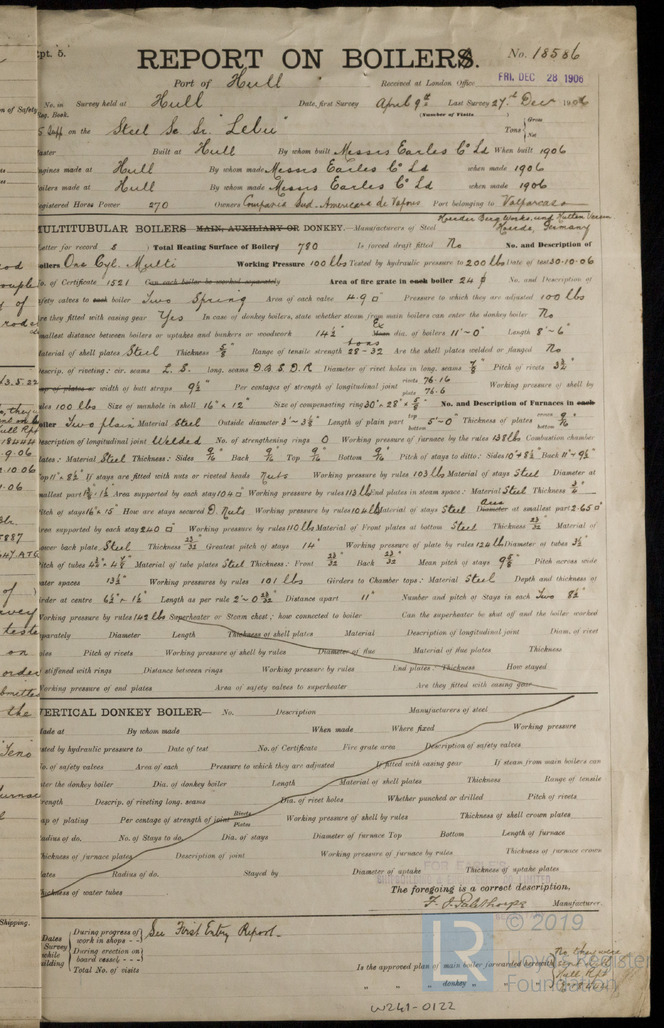 Rpt. 5.
REPORT ON BOILERS.
No. 18586
Port of Hull
Received at London Office
FRI. DEC 28 1906
No. in Survey held at Hull Date, first Survey April 9th Last Survey 27th Decr 1906
Reg. Book.
(Number of Visits
on the Steel Sc Sr. "Lebu" Tons { Gross Net
Master Built at Hull By whom built Messrs Earles Co Ld When built 1906
Engines made at Hull By whom made Messrs Earles Co Ld when made 1906
Boilers made at Hull By whom made Messrs Earles Co Ld when made 1906
Registered Horse Power 270 Owners Compania Sud-Americana de Vapores Port belonging to Valparaiso
MULTITUBULAR BOILERS MAIN, AUXILIARY OR DONKEY.—Manufacturers of Steel Hoerde, Germany
Letter for record S Total Heating Surface of Boilers 780 Is forced draft fitted No No. and Description of
Boilers One Cyl. Multi Working Pressure 100 lbs Tested by hydraulic pressure to 200 lbs Date of test 30.10.06
No. of Certificate 1521 Can each boiler be worked separately Area of fire grate in each boiler 24 No. and Description of
safety valves to each boiler Two Spring Area of each valve 4.90 □" Pressure to which they are adjusted 100 lbs
Are they fitted with easing gear Yes In case of donkey boilers, state whether steam from main boilers can enter the donkey boiler No
Smallest distance between boilers or uptakes and bunkers or woodwork 14½" Mean Ex dia. of boilers 11'-0" Length 8'-6"
Material of shell plates Steel Thickness 5/8 Range of tensile strength 28-32 tons Are the shell plates welded or flanged No
Descrip. of riveting: cir. seams L. S. long. seams D.B.S D.R Diameter of rivet holes in long. seams 7/8 Pitch of rivets 3½"
Lap of plates or width of butt straps 9½" Per centages of strength of longitudinal joint rivets 76.16 plate 76.6 Working pressure of shell by
rules 100 lbs Size of manhole in shell 16" x 12" Size of compensating ring 30" x 28" x 5/8 No. and Description of Furnaces in each
boiler Two plain Material Steel Outside diameter 3'-3½" Length of plain part top bottom 5'-0" Thickness of plates crown bottom 9/16"
Description of longitudinal joint Welded No. of strengthening rings 0 Working pressure of furnace by the rules 138 lbs Combustion chamber
plates: Material Steel Thickness: Sides 9/16" Back 9/16" Top 9/16" Bottom 9/16" Pitch of stays to ditto: Sides 10" x 8½" Back 11" x 9½"
Top 11" x 8½" If stays are fitted with nuts or riveted heads Nuts Working pressure by rules 103 lbs Material of stays Steel Diameter at
smallest part Area supported by each stay 104 □" Working pressure by rules 113 lbs End plates in steam space: Material Steel Thickness
Pitch of stays 16" x 15" How are stays secured D. Nuts Working pressure by rules 104 lbs Material of stays Steel Diameter Area at smallest part 2.65 □"
Area supported by each stay 240 □" Working pressure by rules 110 lbs Material of Front plates at bottom Steel Thickness 23/32" Material of
Lower back plate Steel Thickness 23/32" Greatest pitch of stays 14" Working pressure of plate by rules 124 lbs Diameter of tubes 3½"
Pitch of tubes Material of tube plates Steel Thickness: Front 23/32" Back 23/32" Mean pitch of stays 9 5/8" Pitch across wide
water spaces 13½" Working pressures by rules 101 lbs Girders to Chamber tops: Material Steel Depth and thickness of
girder at centre 6½" x 1½" Length as per rule 2'-0 Distance apart 11" Number and pitch of Stays in each Two 8½"
Working pressure by rules 142 lbs Superheater or Steam chest; how connected to boiler Can the superheater be shut off and the boiler worked
separately Diameter Length Thickness of shell plates Material Description of longitudinal joint Diam. of rivet
holes Pitch of rivets Working pressure of shell by rules Diameter of flue Material of flue plates Thickness
If stiffened with rings Distance between rings Working pressure by rules End plates: Thickness How stayed
Working pressure of end plates Area of safety valves to superheater Are they fitted with easing gear
VERTICAL DONKEY BOILER— No. Description Manufacturers of steel
Made at By whom made When made Where fixed Working pressure
tested by hydraulic pressure to Date of test No. of Certificate Fire grate area Description of safety valves
No. of safety valves Area of each Pressure to which they are adjusted If fitted with easing gear If steam from main boilers can
enter the donkey boiler Dia. of donkey boiler Length Material of shell plates Thickness Range of tensile
strength Descrip. of riveting long. seams Dia. of rivet holes Whether punched or drilled Pitch of rivets
Lap of plating Per centage of strength of joint Rivets Plates Working pressure of shell by rules Thickness of shell crown plates
Radius of do. No. of Stays to do. Dia. of stays Diameter of furnace Top Bottom Length of furnace
Thickness of furnace plates Description of joint Working pressure of furnace by rules Thickness of furnace crown
plates Radius of do. Stayed by Diameter of uptake Thickness of uptake plates
Thickness of water tubes
FOR EARLES
The foregoing is a correct description,
Manufacturer.
Dates of Survey while building { During progress of work in shops - - During erection on board vessel - - - Total No. of visits
See First Entry Report.
Is the approved plan of main boiler forwarded herewith
" " " donkey " "
Hull Rpt
© 2019
LR
Lloyd's Register
Foundation
W241-0122